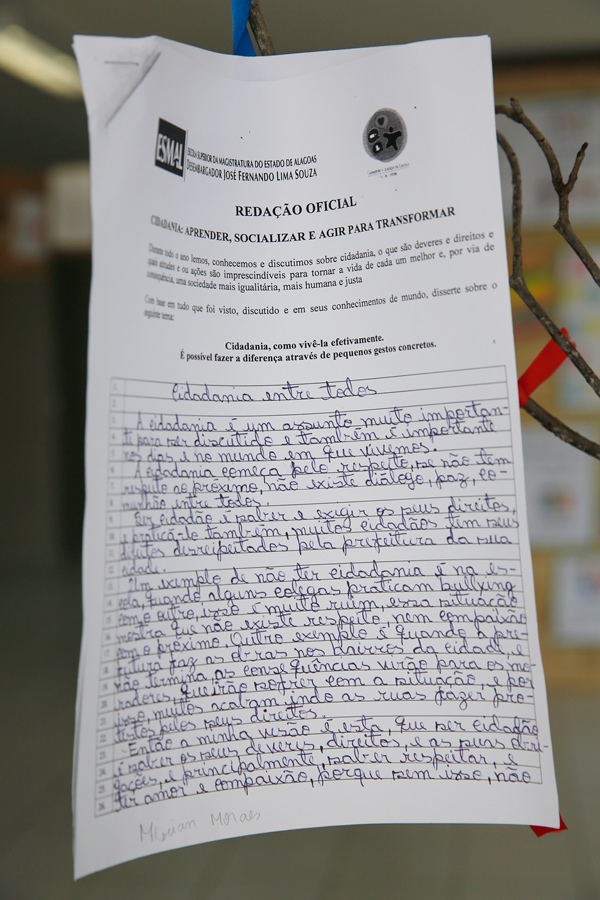 ESMAL
ESCOLA SUPERIOR DA MAGISTRATURA DO ESTADO DE ALAGOAS
DESEMBARGADOR JOSÉ FERNANDO LIMA SOUZA
REDAÇÃO OFICIAL
CIDADANIA: APRENDER, SOCIALIZAR E AGIR PARA TRANSFORMAR
Durante todo o ano lemos, conhecemos e discutimos sobre cidadania, o que são deveres e direitos e
quais atitudes e ou ações são imprescindíveis para tornar a vida de cada um melhor e, por via de
consequência, uma sociedade mais igualitária, mais humana e justa
Com base em tudo que foi visto, discutido e em seus conhecimentos de mundo, disserte sobre o
seguinte tema:
Cidadania, como vivê-la efetivamente.
É possível fazer a diferença através de pequenos gestos concretos.
Cidadania entre todos
A cidadania é um assunto muito importan-
te para ser discutido e também é importante
nos dias, e no mundo em que vivemos.
A cidadania começa pelo respeito, se não tem
respeito ao próximo, não existe diálogo, paz, co-
munhão entre todos.
Ser cidadão é saber e exigir os seus direitos,
e praticá-lo também, muitos cidadãos tem seus
direitos desrespeitados pela prefeitura da sua
cidade.
Um exemplo de não ter cidadania é na es-
cola, quando alguns colegas praticam bullying
com o outro, isso é muito ruim, essa situação
mostra que não existe respeito, nem compaixão
com o próximo. Outro exemplo é quando a pre-
feitura faz as obras nos bairros da cidade, e
não termina, as consequências virão para os mo-
radores, que irão sofrer com a situação, e por
isso, muitos acabam indo as ruas fazer pro-
testos pelos seus direitos.
Então a minha visão é esta, que ser cidadão
é saber os seus deveres, direitos, e as suas obri-
gações, e principalmente, saber respeitar, e
ter amor e compaixão, porque sem isso, não
Mirian Moraes